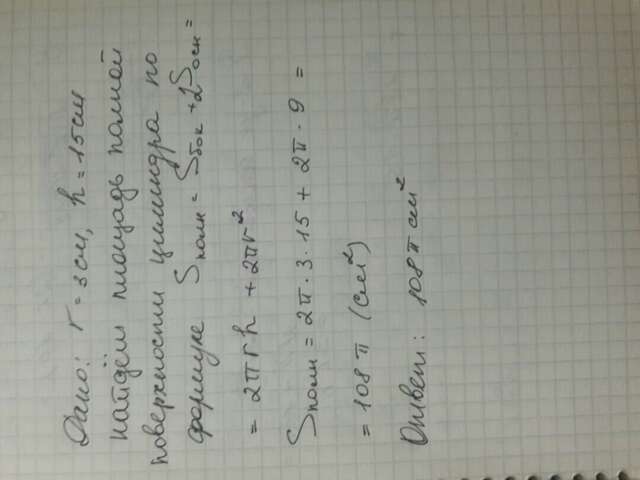 Дано: r = 3 см, h = 15 см
найдём площадь полной
поверхности цилиндра по
формуле Sполн = Sбок + 2Sосн =
= 2πrh + 2πr²
Sполн = 2π · 3 · 15 + 2π · 9 =
= 108π (см²)
Ответ: 108π см²